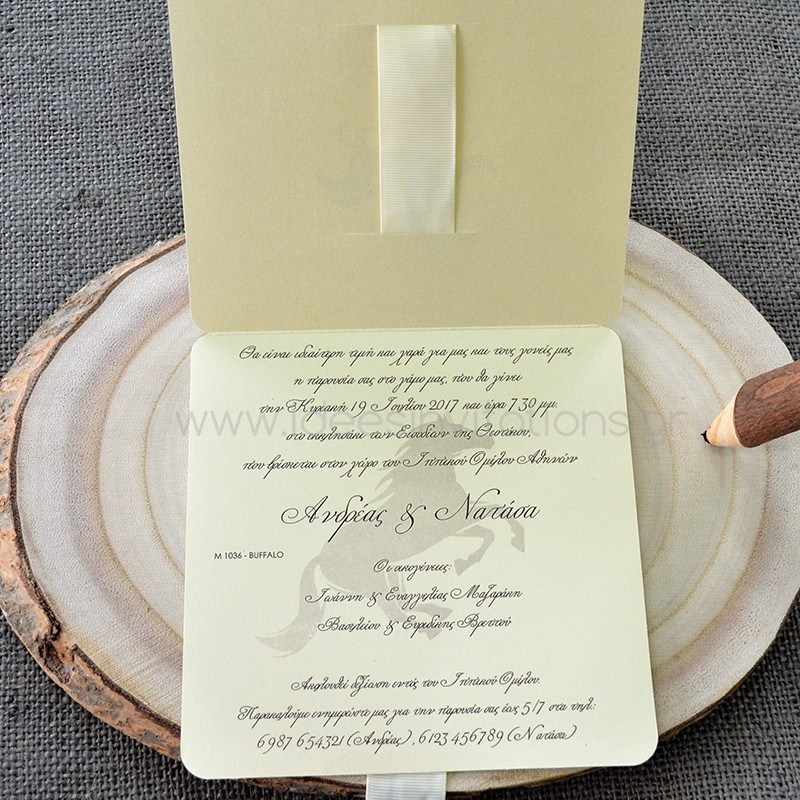 Θα είναι ιδιαίτερη τιμή και χαρά για μας και τους γονείς μας
η παρουσία σας στο γάμο μας, που θα γίνει
την Κυριακή 19 Ιουλίου 2017 και ώρα 7.30 μμ.
www.ideesinvitations.gr
στο εκκλησάκι των Εισοδίων της Θεοτόκου,
που βρίσκεται στον χώρο του Ιππικού Ομίλου Αθηνών
Ανδρέας & Νατάσα
M 1036 - BUFFALO
Οι οικογένειες:
Ιωάννη & Ευαγγελίας Μαζαράκη
Βασιλείου & Ευριδίκης Βρεττού
Ακολουθεί δεξίωση εντός του Ιππικού Ομίλου.
Παρακαλούμε ενημερώστε μας για την παρουσία σας έως 5/7 στα τηλ.:
6987 654321 (Ανδρέας) , 6123 456789 (Νατάσα)